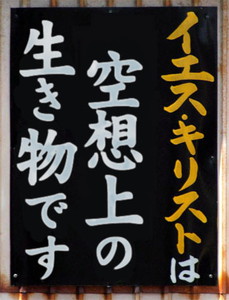 イエス・キリストは
空想上の
生き物です